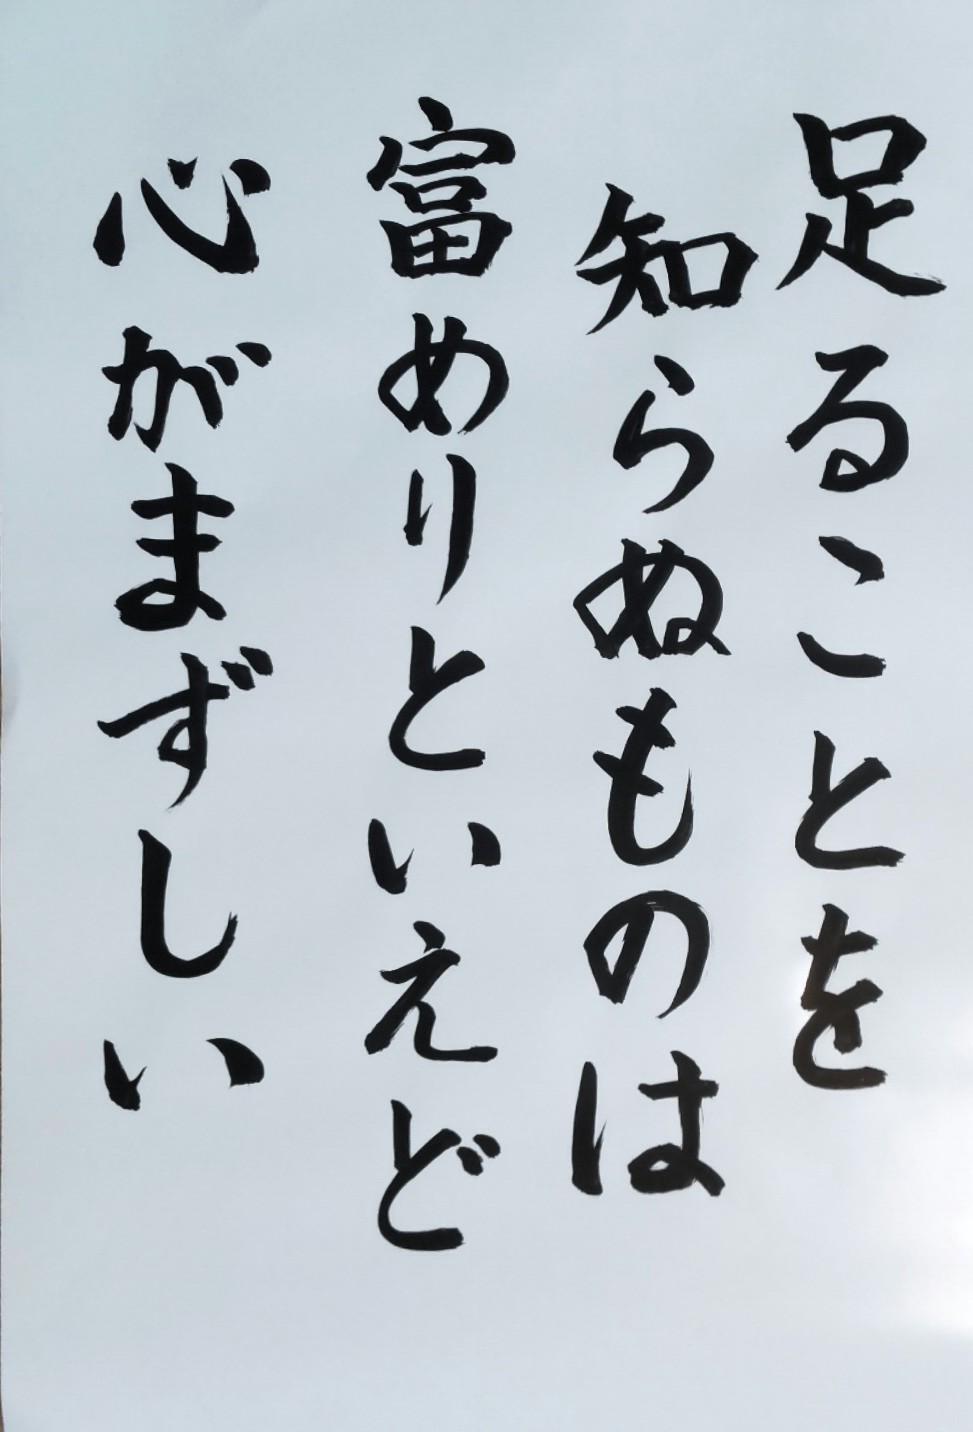 足ることを
知らぬものは
富めりといえど
心がまずしい